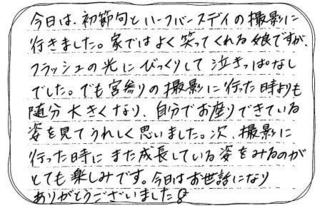 今日は、初節句とハーフバースデイの撮影に
行きました。家ではよく笑ってくれる娘ですが、
フラッシュの光にびっくりして泣きっぱなし
でした。でも宮参りの撮影に行った時よりも
随分大きくなり、自分でお座りできている
姿を見てうれしく思いました。次、撮影に
行った時にまた成長している姿をみるのが
とても楽しみです。今日はお世話になり
ありがとうございました